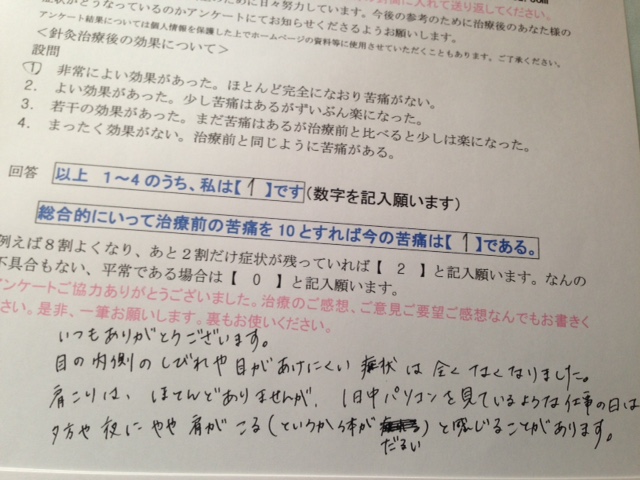 に入れて送り返してください。
ために日々努力しています。今後の参考のために治療後のあなた様の
症状がどうなっているのかアンケートにてお知らせくださるようお願いします。
アンケート結果については個人情報を保護した上でホームページの資料等に使用させていただくこともあります。ご了承ください。
<針灸治療後の効果について>
設問
1. 非常によい効果があった。ほとんど完全になおり苦痛がない。
2. よい効果があった。少し苦痛はあるがずいぶん楽になった。
3. 若干の効果があった。まだ苦痛はあるが治療前と比べると少しは楽になった。
4. まったく効果がない。治療前と同じように苦痛がある。
回答 以上 1~4のうち、私は【 1 】です(数字を記入願います)
総合的にいって治療前の苦痛を10とすれば今の苦痛は【 1 】である。
例えば8割よくなり、あと2割だけ症状が残っていれば【 2 】と記入願います。なんの
不具合もない、平常である場合は【 0 】と記入願います。
アンケートご協力ありがとうございました。治療のご感想、ご意見ご要望ご感想なんでもお書きく
ださい。是非、一筆お願いします。裏もお使いください。
いつもありがとうございます。
目の内側のしびれや目があけにくい症状は全くなくなりました。
肩こりは、ほとんどありませんが、1日中パソコンを見ているような仕事の日は
夕方や夜にやや肩がこる(というか体が だるい)と感じることがあります。